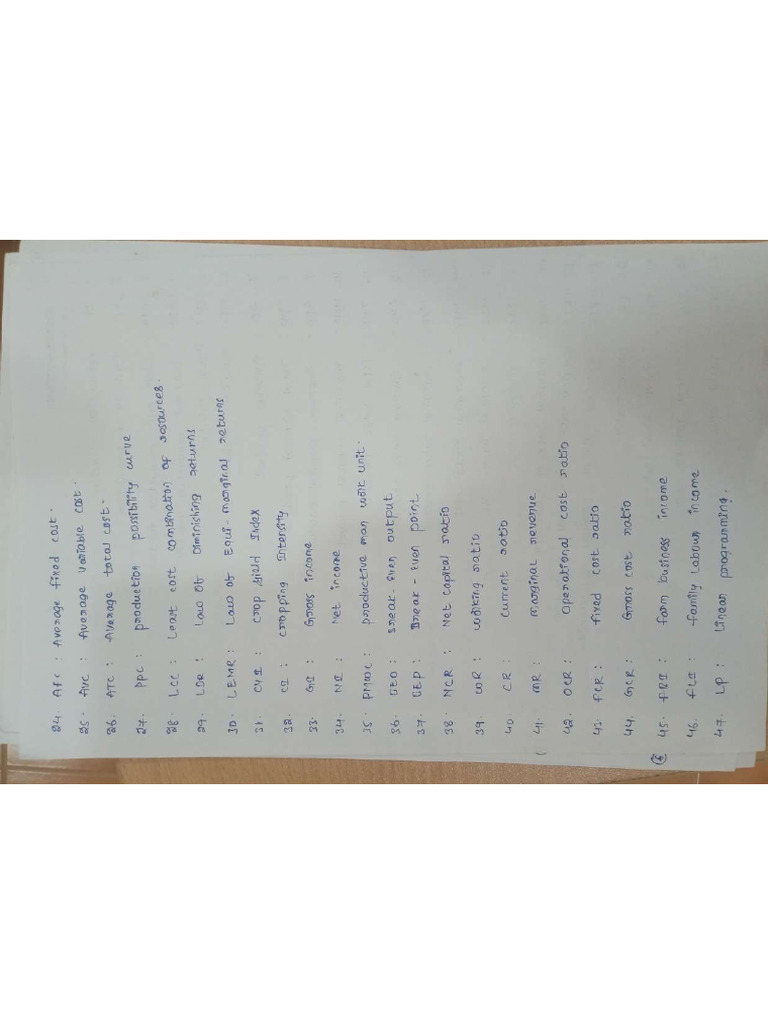 24. AFC : Average fixed cost.
25. AVC : Average variable cost.
26. ATC : Average total cost.
27. PPC : production possibility curve
28. LCC : Least cost combination of resources.
29. LDR : Law of Diminishing returns
30. LEMR : Law of Equi-marginal returns
31. CYI : crop yield Index
32. CI : cropping Intensity
33. GI : Gross income
34. NI : Net income
35. PMWU : productive man work unit.
36. BEO : Break-Even output
37. BEP : Break-Even point
38. NCR : Net capital ratio
39. WR : Working ratio
40. CR : Current ratio
41. MR : marginal revenue
42. OCR : Operational cost ratio
43. FCR : fixed cost ratio
44. GCR : Gross cost ratio
45. FBI : farm business income
46. FLI : family Labour income
47. LP : Linear programming.
6